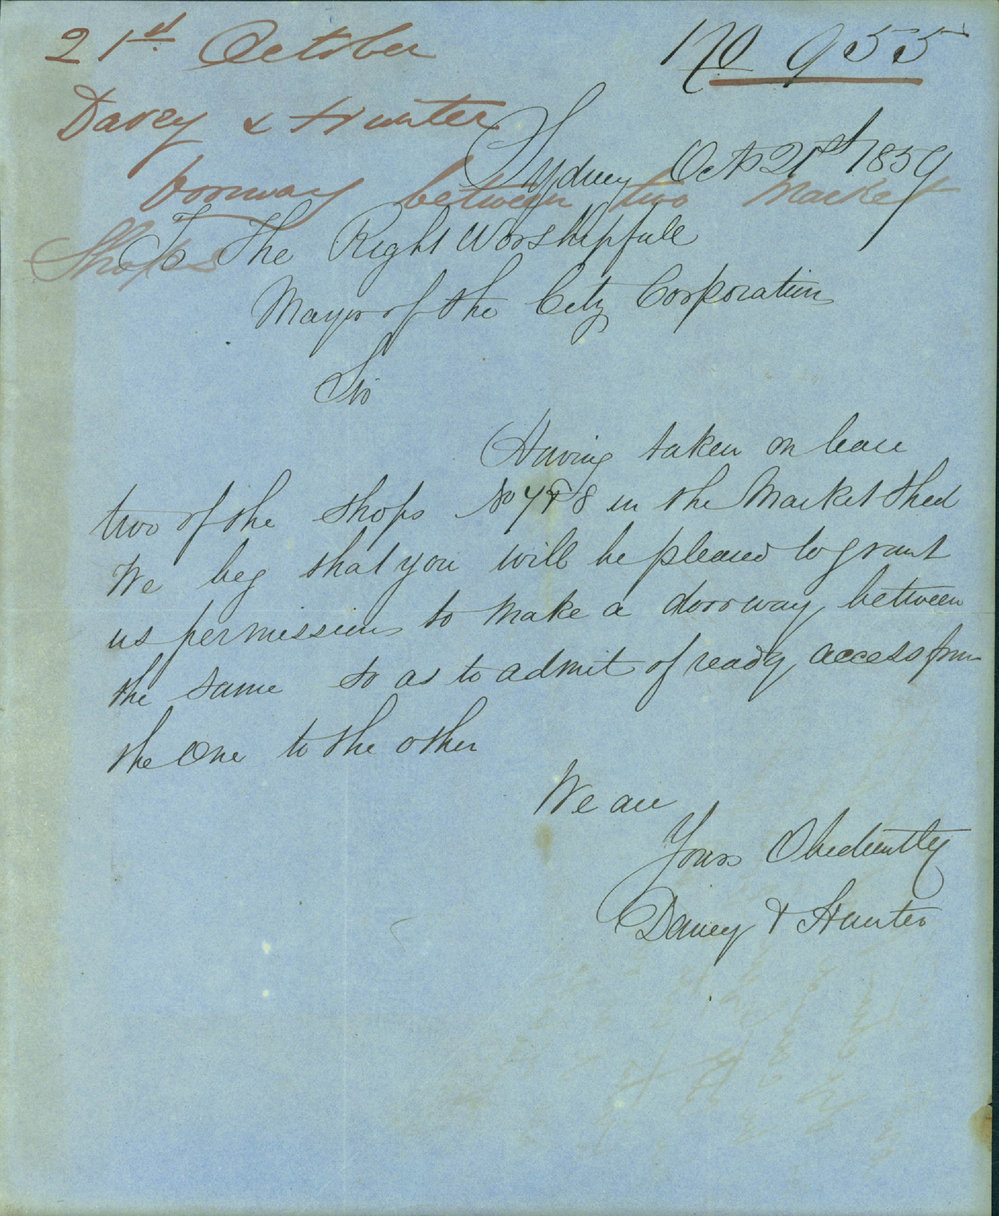 21st October
No 955
Davey & Hunter
Sydney Oct 21st 1859
doorway between two Market
Shops
To The Right Worshipfull
Mayor of the City Corporation
Sir
Having taken on lease
two of the shops No 7 & 8 in the Market Shed
We beg that you will be pleased to grant
us permission to make a doorway between
the same so as to admit of ready access from
the One to the other
We are
Yours Obediently
Davey & Hunter